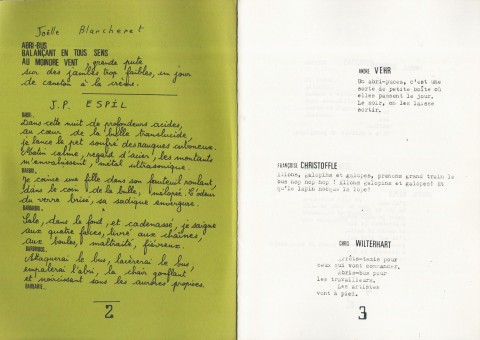 Joëlle Blancheret
ABRI-BUS
BALANÇANT EN TOUS SENS
AU MOINDRE VENT, grande pute
sur des jambes trop faibles, un jour
de caneton à la crème.
J.P. ESPIL
Dans cette nuit de profondeurs acides,
au cœur de la bulle translucide,
je lance le pet soufré des rauques cuivreux.
Matin calme, regard d'acier, les montants
m'envahissent, métal ultrasonique.
Je coince une fille dans son fauteuil roulant,
dans le coin de la bulle, mélopée. L'odeur
du verre brisé, sa sadique envergure.
Sale, dans le fond, et cadenassé, je saigne
aux quatre fers, livré aux chaînes,
aux boules, maltraité, fiévreux.
Attaquerai le bus, lacérerai le bus
empalerai l'abri, la chair gonflant
et noircissant sous les aurores propices.
2
ANDRÉ VEHR
Un abri-puces, c'est une
sorte de petite boîte où
elles passent le jour.
Le soir, on les laisse
sortir.
FRANÇOISE CHRISTOFFLE
Allons, galopins et galopes, prenons grand train le
bus hop hop hop ! Allons galopins et galopes! Et
qu'le lapin manque le loup!
CHRIS WILTERHART
Arrêts-taxis pour
ceux qui vont commander.
Abris-bus pour
les travailleurs.
Les artistes
vont à pied.
3